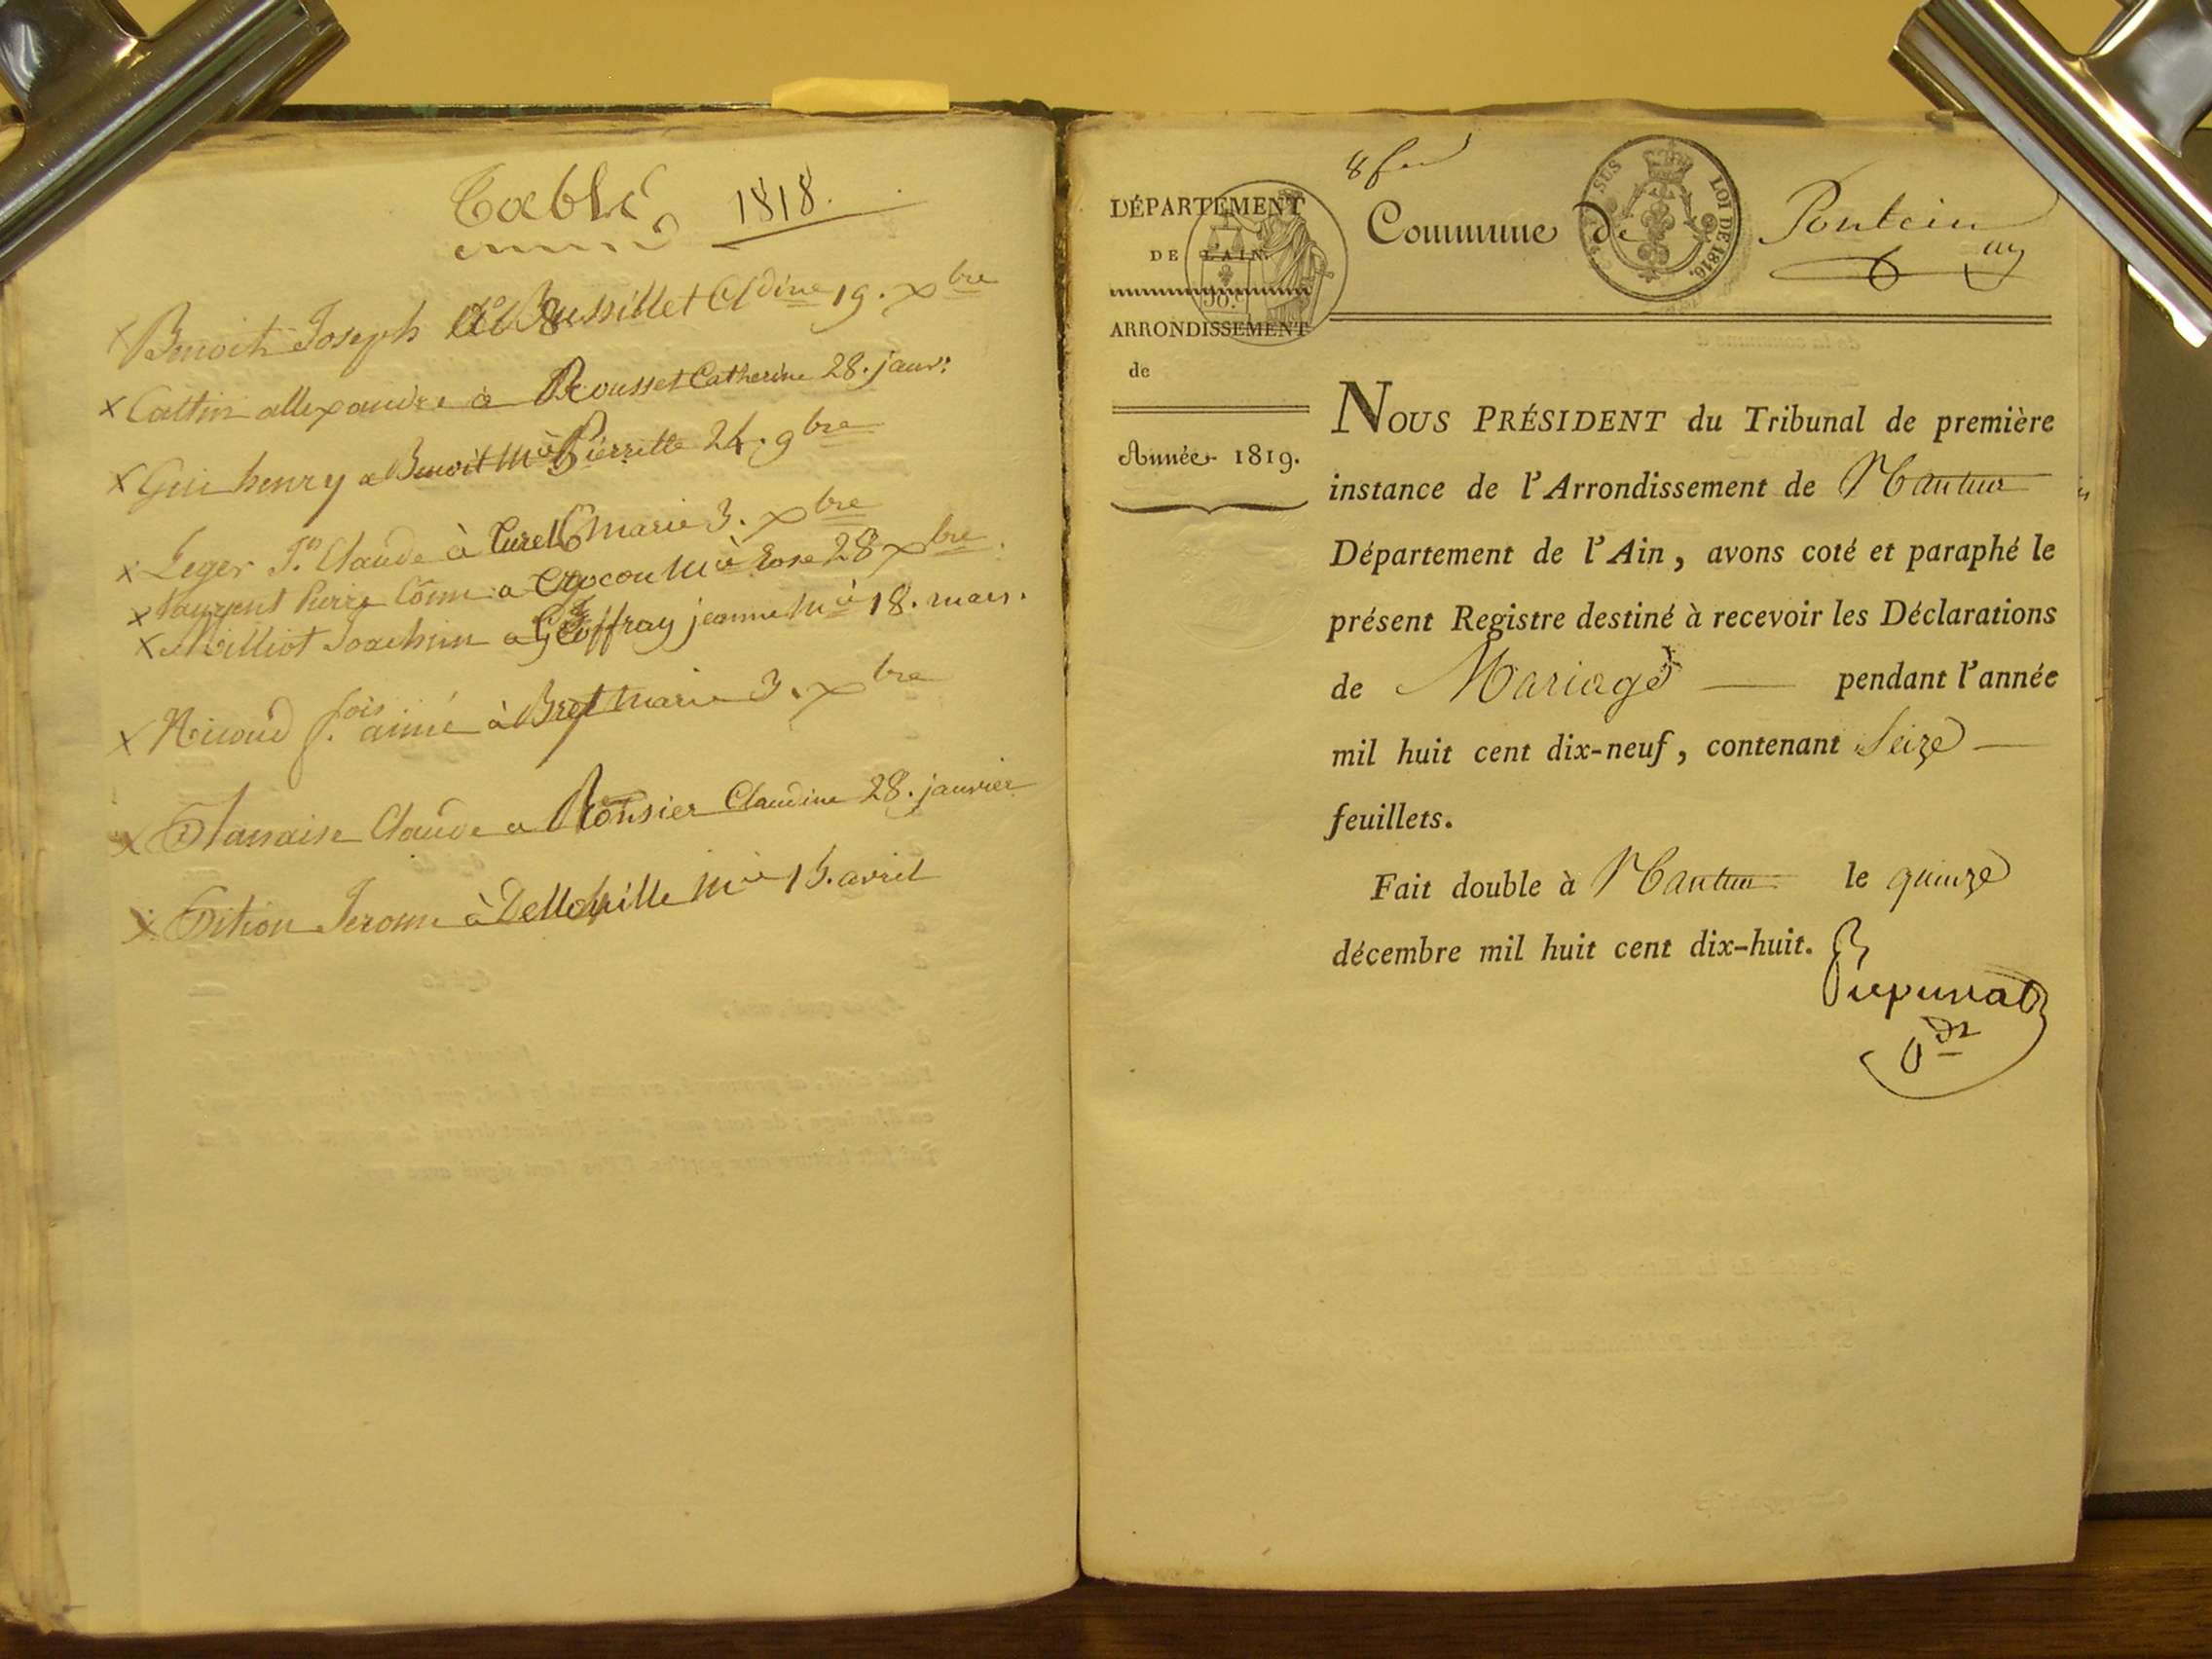 Table 1818.
Benoit Joseph à Bussillet Cldine 19. xbre
x Cattin allexandre à Rousset Catherine 28. janvr.
x Gui henry a Benoit Mie Pierrette 24. 9bre
x Leger Jn. Claude à Curel marie 3. xbre
x Laurent Pierre Come a Mie Rose 28 xbre
x Milliot Joachim a Geoffray jeanne Mie 18. mars.
x Nicoud fois. aimé à Bret marie 3. xbre
x Claude a Ronsier Claudine 28. janvier
x Jerome à Mie 15. avril
8 f
DÉPARTEMENT
DE L'AIN.
ARRONDISSEMENT
de
Année 1819.
Commune de Poncin
SUS LOI DE 1816.
NOUS PRÉSIDENT du Tribunal de première
instance de l'Arrondissement de Nantua
Département de l'Ain, avons coté et paraphé le
présent Registre destiné à recevoir les Déclarations
de Mariage pendant l'année
mil huit cent dix-neuf, contenant Seize
feuillets.
Fait double à Nantua le quinze
décembre mil huit cent dix-huit.